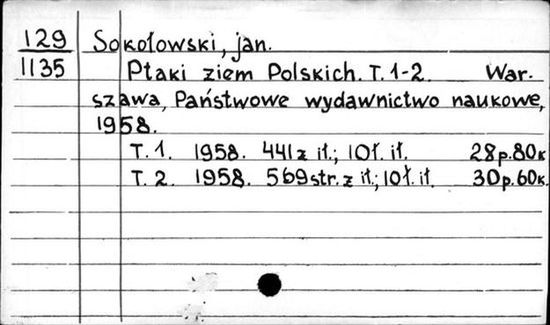 129 Sokołowski, jan.
1135 Ptaki ziem Polskich. T. 1-2. War-
szawa, Państwowe wydawnictwo naukowe,
1958.
T. 1. 1958. 441 z il.; 10 ł. il. 28 p. 80 к
T. 2. 1958. 569 str. z il.; 10 ł. il. 30 p. 60 к.